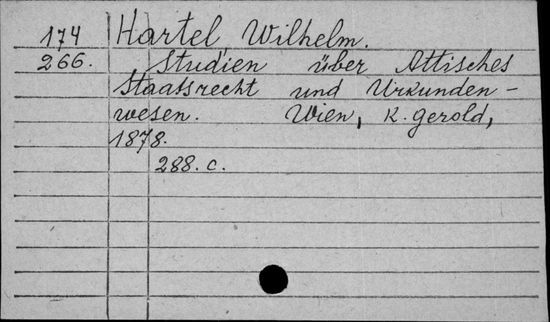 174 Hartel Wilhelm.
266. Studien über Attisches
Staatsrecht und Urkunden-
wesen. Wien, K. Gerold,
1878.
288. c.